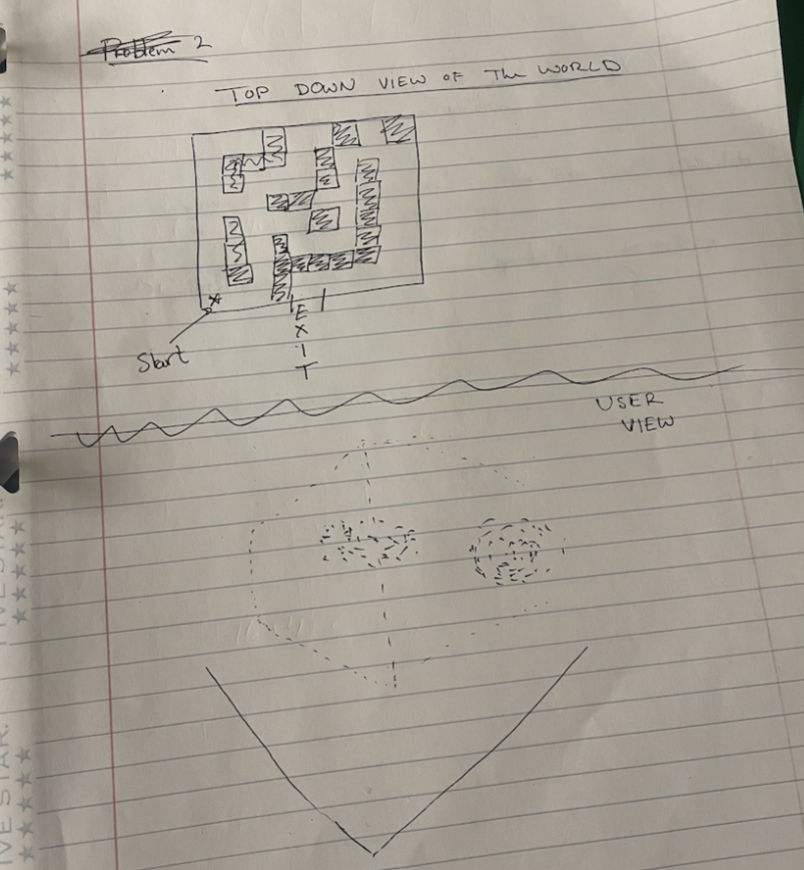 Problem 2
TOP DOWN VIEW OF The WORLD
Start
E
X
I
T
USER
VIEW
FIVE STAR.
FIVE STAR.